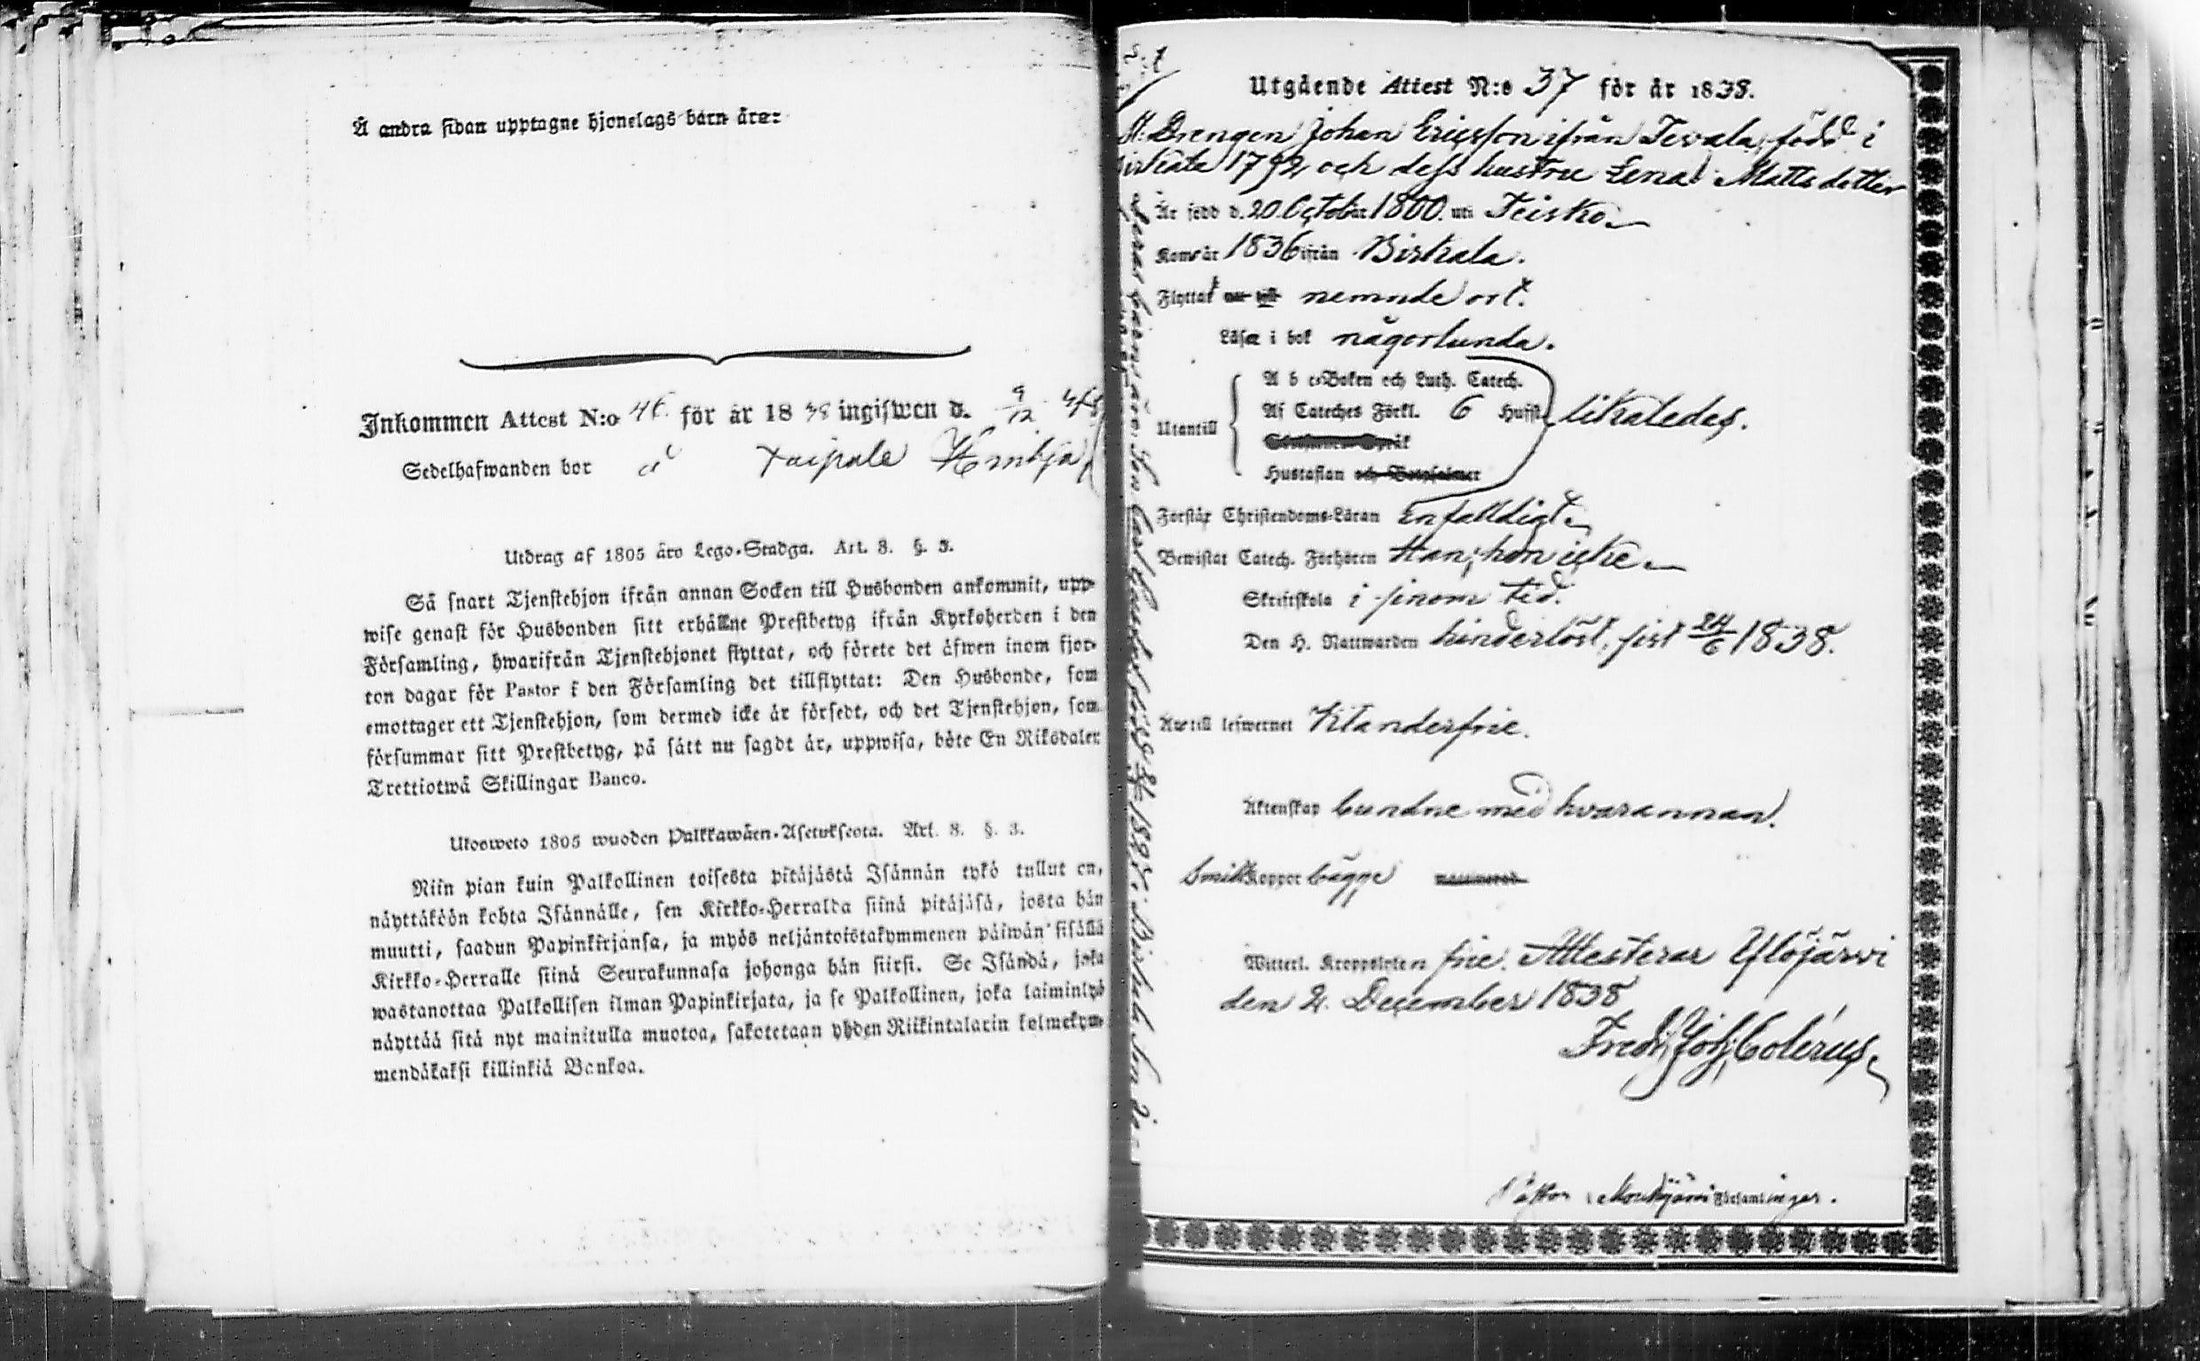 Å andra sidan upptagne hjonelags barn äro:
Inkommen Attest N:o 46 för år 1838 ingifwen d. 9/12
Sedelhafwanden bor å Taipale
Utdrag af 1805 åro Lego-Stadga. Art. 8. §. 3.
Så snart Tjenstehjon ifrån annan Socken till Husbonden ankommit, upp-
wise genast för Husbonden sitt erhållne Prestbetyg ifrån Kyrkoherden i den
Församling, hwarifrån Tjenstehjonet flyttat, och förete det äfwen inom fjor-
ton dagar för Pastor i den Församling det tillflyttat: Den Husbonde, som
emottager ett Tjenstehjon, som dermed icke är försedt, och det Tjenstehjon, som
försummar sitt Prestbetyg, på sätt nu sagdt är, uppwisa, böte En Riksdaler
Trettiotwå Skillingar Banco.
Uloosweto 1805 wuoden Palkkawäen-Asetuksesta. Art. 8. §. 3.
Niin pian kuin Palkollinen toisesta pitäjästä Isännän tykö tullut on,
näyttäköön kohta Isännälle, sen Kirkko-Herralda siinä pitäjäsä, josta hän
muutti, saadun Papinkirjansa, ja myös neljäntoistakymmenen päiwän sisällä
Kirkko-Herralle siinä Seurakunnasa johonga hän siirsi. Se Isändä, joka
wastanottaa Palkollisen ilman Papinkirjata, ja se Palkollinen, joka laiminlyö
näyttää sitä nyt mainitulla muotoa, sakotetaan yhden Riikintalarin kolmekym-
mendäkaksi killinkiä Bankoa.
Utgående Attest N:o 37 för år 1838.
Drengen Johan Ericsson ifrån Tevala, född i
Birkala 1792 och dess hustru Lena Mattsdotter
Är född d. 20 October 1800. uti Teisko
Kom år 1836 ifrån Birkala.
Flyttat nemnde ort.
Läsa i bok någorlunda.
Utantill
A b c-Boken och Luth. Catech.
Af Cateches Förkl. 6 Hufst. likaledes.
Hustaflan
Förstår Christendoms-Läran Enfalldigt
Bewistat Catech. Förhören Han, hon icke
Skriftskola i sinom tid.
Den H. Nattwarden hinderlöst, sist 24/6 1838.
Äro till lefwernet Klanderfrie.
Äktenskap bundne med hvarannan.
Smittkoppor bägge
Witterl. Kroppslyten frie. Attesteras Ylöjärvi
den 2. December 1838
Fredr. Joh. Colerus
Pastor i Församlingar.